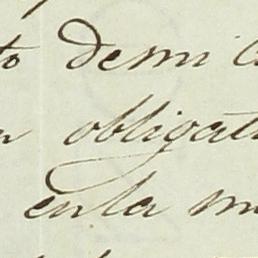 to demi
obligat
enla m